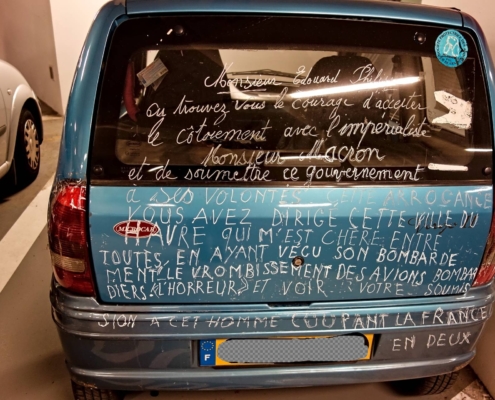 Monsieur Edouard Philippe
ou trouvez vous le courage d'accepter
le côtoiement avec l'impérialiste
Monsieur Macron
et de soumettre ce gouvernement
A SES VOLONTES CETTE ARROGANCE
VOUS AVEZ DIRIGE CETTE VILLE DU
HAVRE QUI M'EST CHERE ENTRE
MICROCAR
TOUTES EN AYANT VECU SON BOMBARDE
MENT LE VROMBISSEMENT DES AVIONS BOMBAR
DIERS L'HORREUR ET VOIR VOTRE SOUMIS
SION A CET HOMME COUPANT LA FRANCE
EN DEUX
F